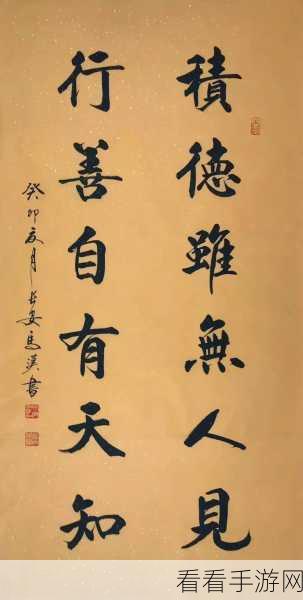 積德雖無人見
行善自有天知
癸卯夏月長安馬漢書
看看手游网